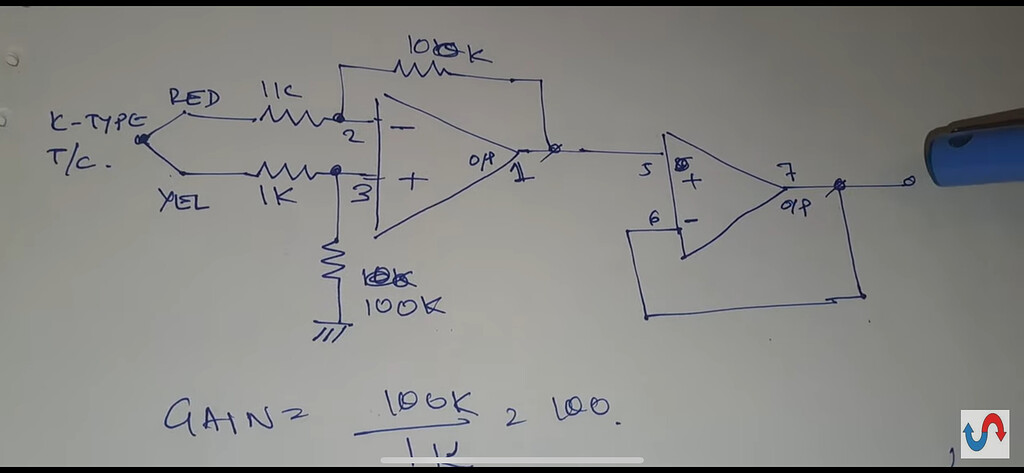 100K
RED
1K
K-TYPE
T/C.
2
−
O/P
1
5
+
7
O/P
YEL
1K
3
+
6
−
100K
GAIN = 100K = 100.
1K